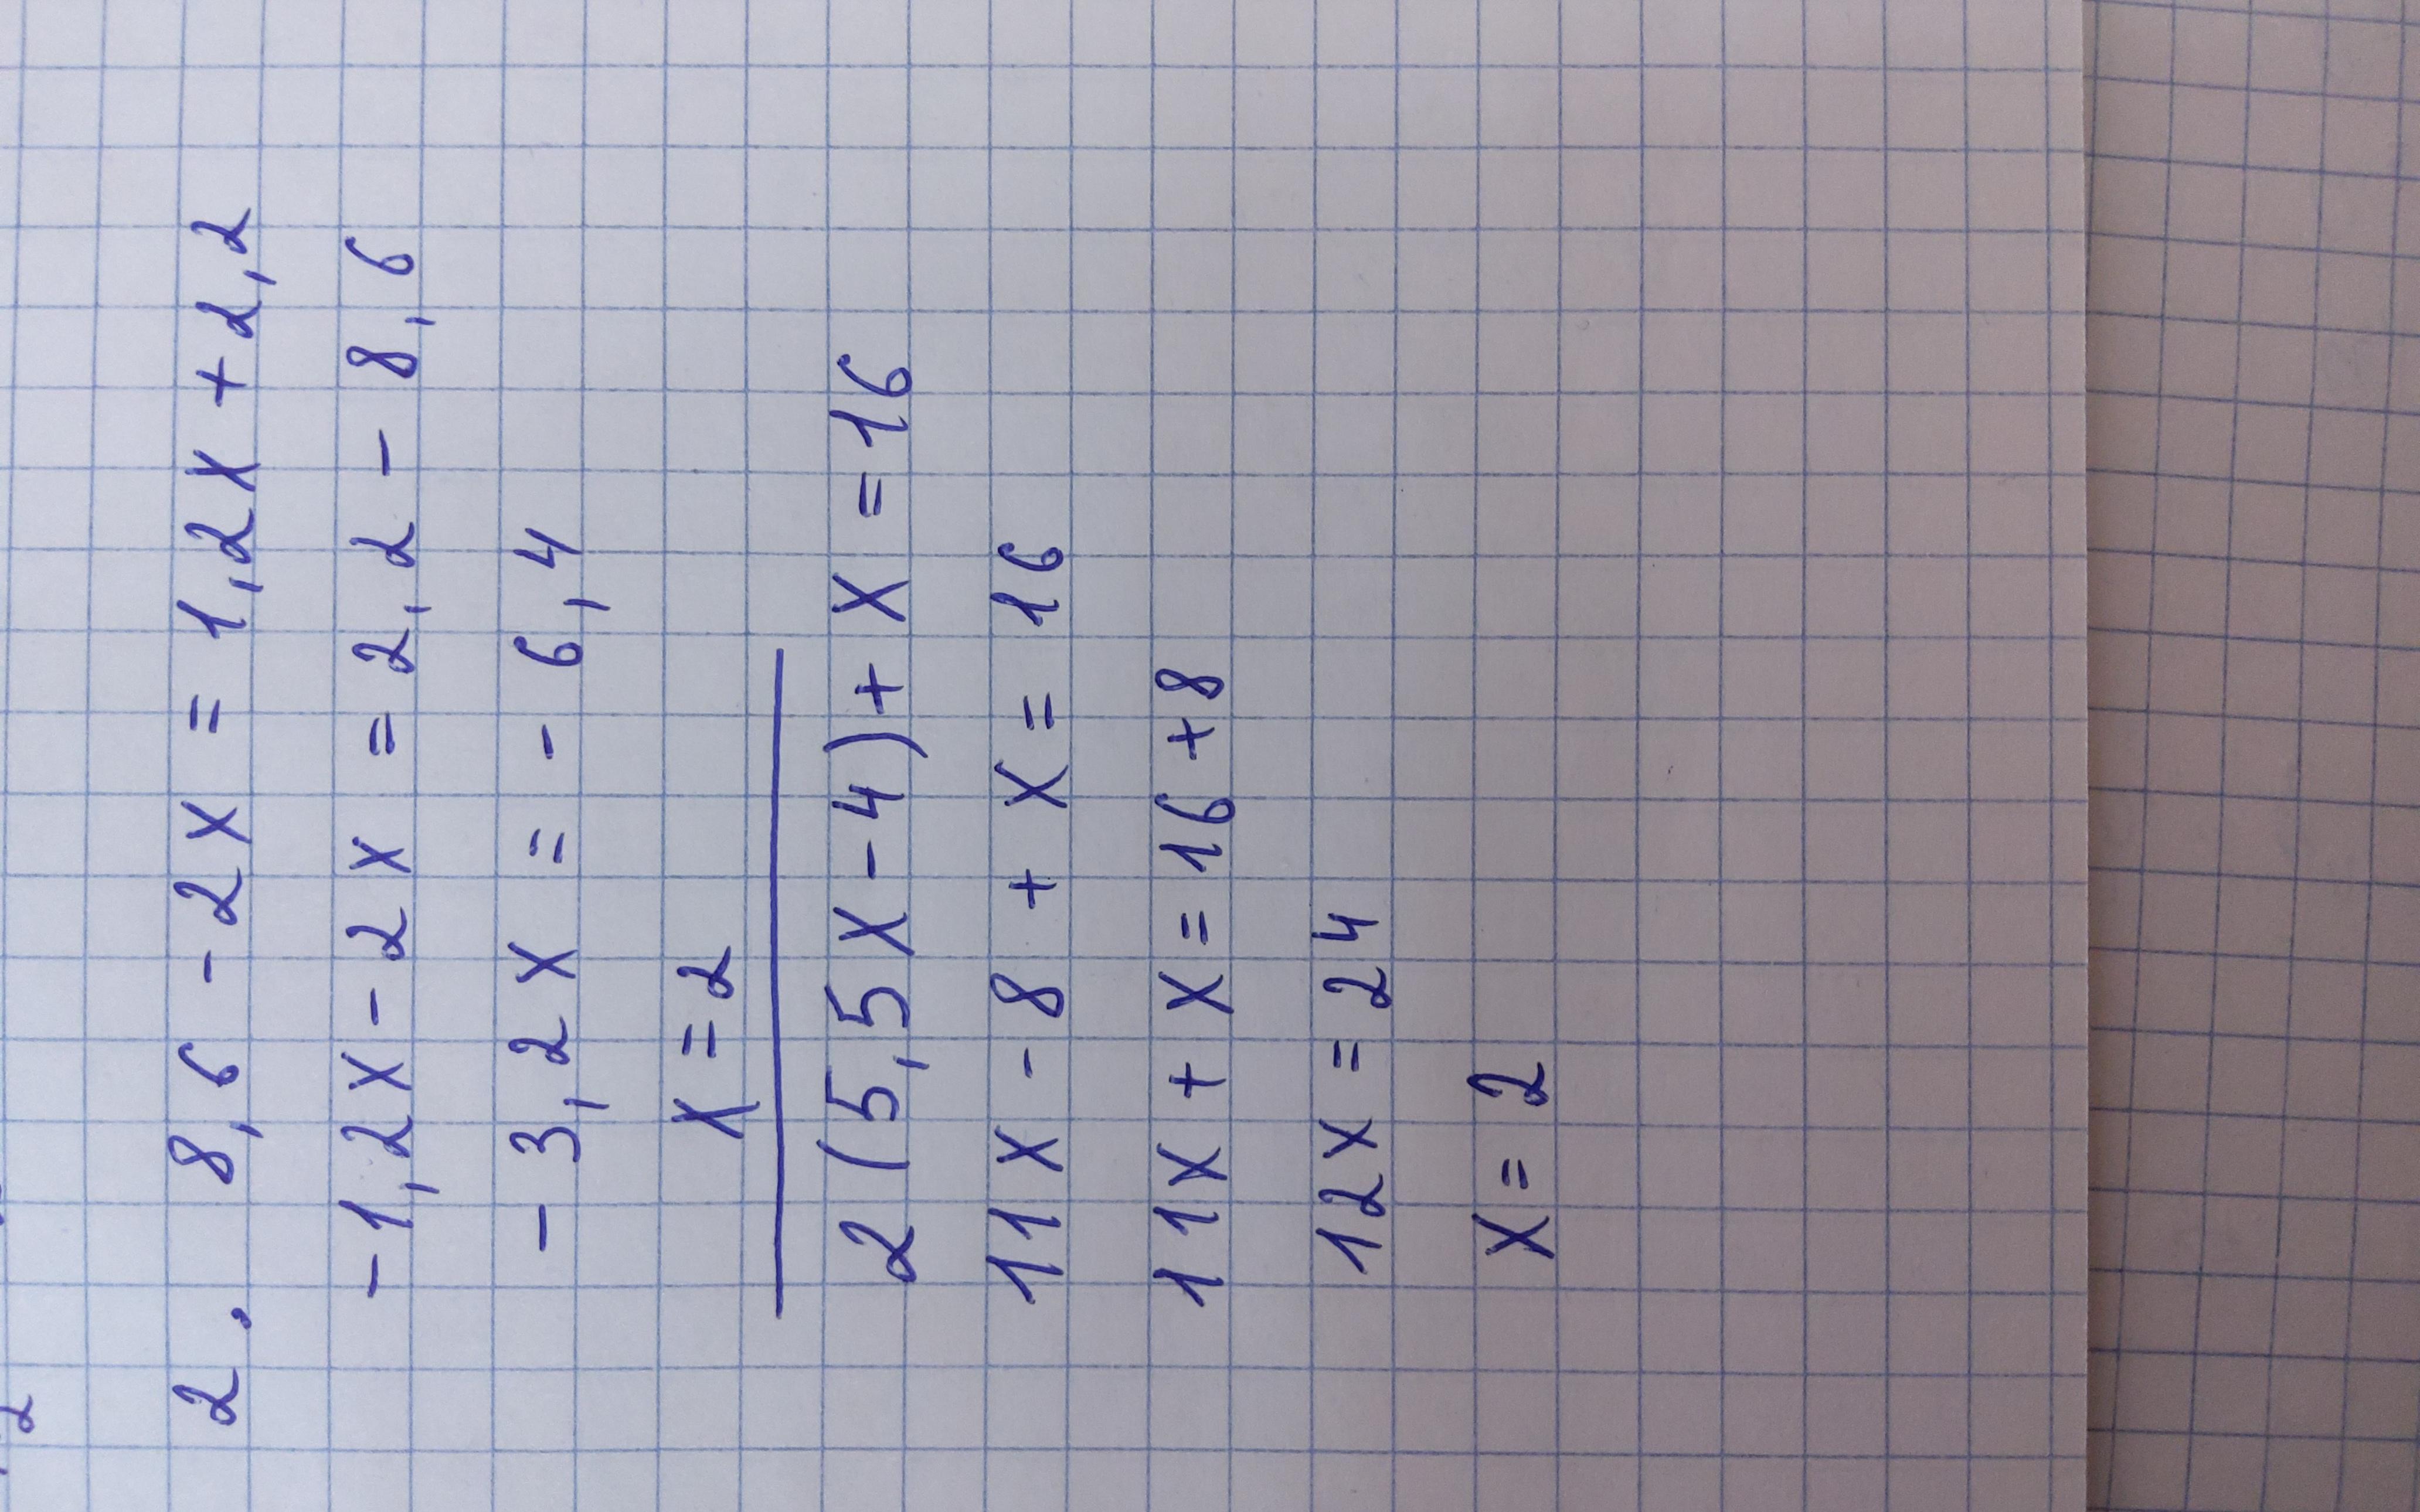 2. 8,6 - 2x = 1,2x + 2,2
-1,2x - 2x = 2,2 - 8,6
- 3,2x = - 6,4
x = 2
2(5,5x - 4) + x = 16
11x - 8 + x = 16
11x + x = 16 + 8
12x = 24
x = 2